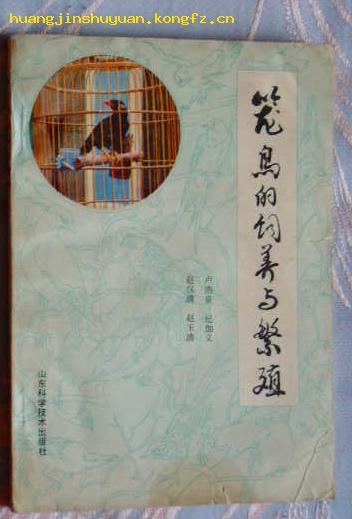 huangjinshuyuan.kongfz.cn
笼鸟的饲养与繁殖
卢浩泉 纪加义
赵玉清
山东科学技术出版社